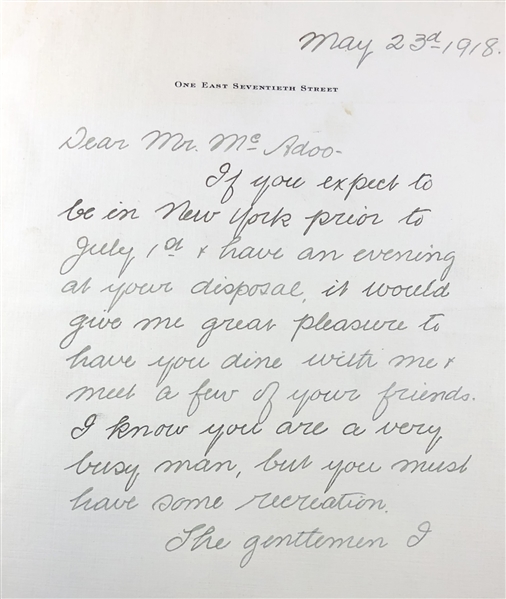 May 23d 1918.
One East Seventieth Street
Dear Mr. Mc Adoo-
If you expect to
be in New York prior to
July 1d & have an evening
at your disposal, it would
give me great pleasure to
have you dine with me &
meet a few of your friends.
I know you are a very
busy man, but you must
have some recreation.
The gentlemen I